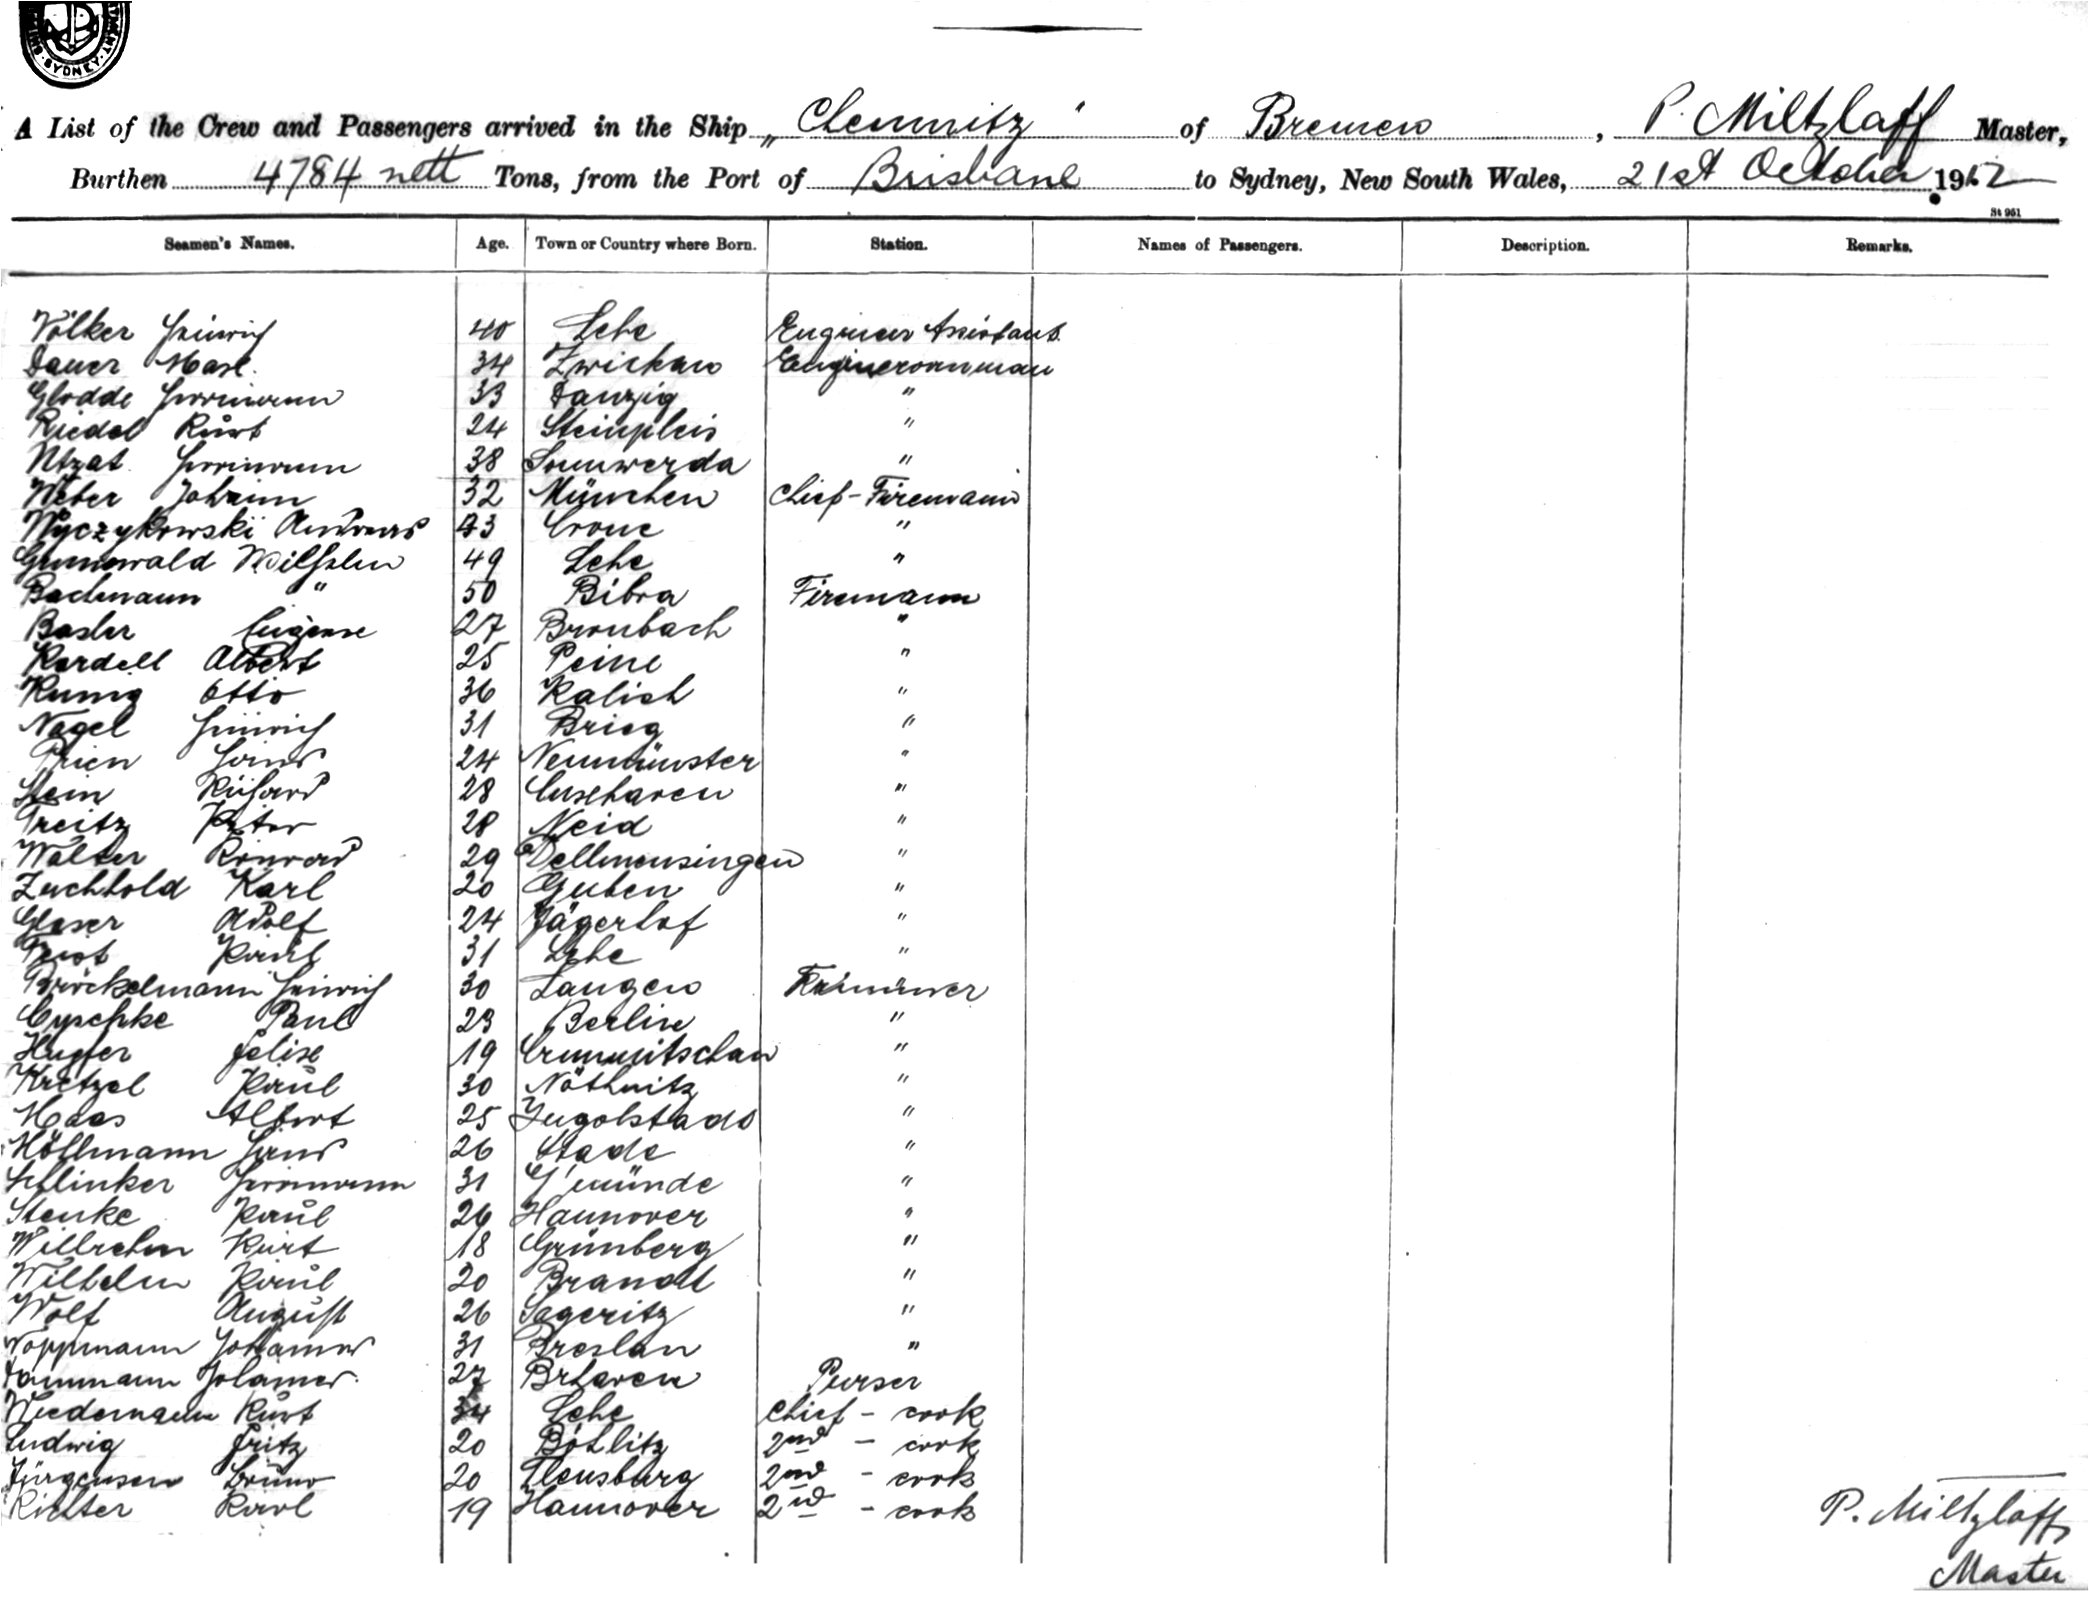 SYDNEY
A List of the Crew and Passengers arrived in the Ship „Chemnitz" of Bremen, P. Miltzlaff Master,
Burthen 4784 nett Tons, from the Port of Brisbane to Sydney, New South Wales, 21st October 1912
St 961
Seamen's Names. Age. Town or Country where Born. Station. Names of Passengers. Description. Remarks.
Völker Heinrich 40 Lehe Engineer Assistant
Dauer Max 34 Zwickau Engineroomman
Glodde Hermann 33 Danzig "
Riedel Kurt 24 Steinpleis "
Utzat Hermann 38 Sömmerda "
Weber Johann 32 München Chief-Firemann
Wyczykowski Andreas 43 Crone "
Grunewald Wilhelm 49 Lehe "
Bachmann " 50 Bibra Firemann
Basler Eugene 27 Brombach "
Kardell Albert 25 Peine "
Kunig Otto 36 Kalish "
Nagel Heinrich 31 Brieg "
Prien Hans 24 Neumünster "
Stein Richard 28 Cuxhaven "
Treitz Peter 28 Neid "
Walter Konrad 29 Dellmensingen "
Zuchhold Karl 20 Guben "
Glaser Adolf 24 Jägerhof "
Feist Paul 31 Lehe "
Bröckelmann Heinrich 30 Langen Trimmer
Cyschke Paul 23 Berlin "
Hupfer Felix 19 Crimmitschau "
Kretzel Paul 30 Nöthnitz "
Haas Albert 25 Ingolstadt "
Höllmann Hans 26 Stade "
Schlinker Hermann 31 G'münde "
Stenke Paul 26 Hannover "
Willrehm Kurt 18 Grünberg "
Wilhelm Paul 20 Brandt "
Wolf August 26 Sageritz "
Woppmann Johannes 31 Breslau "
Dammann Johannes 27 Brhaven Purser
Wiedemann Kurt 34 Lehe Chief - cook
Ludwig Fritz 20 Böhlitz 2nd - cook
Jürgensen Bruno 20 Flensburg 2nd - cook
Richter Karl 19 Hannover 2nd - cook
P. Miltzlaff
Master